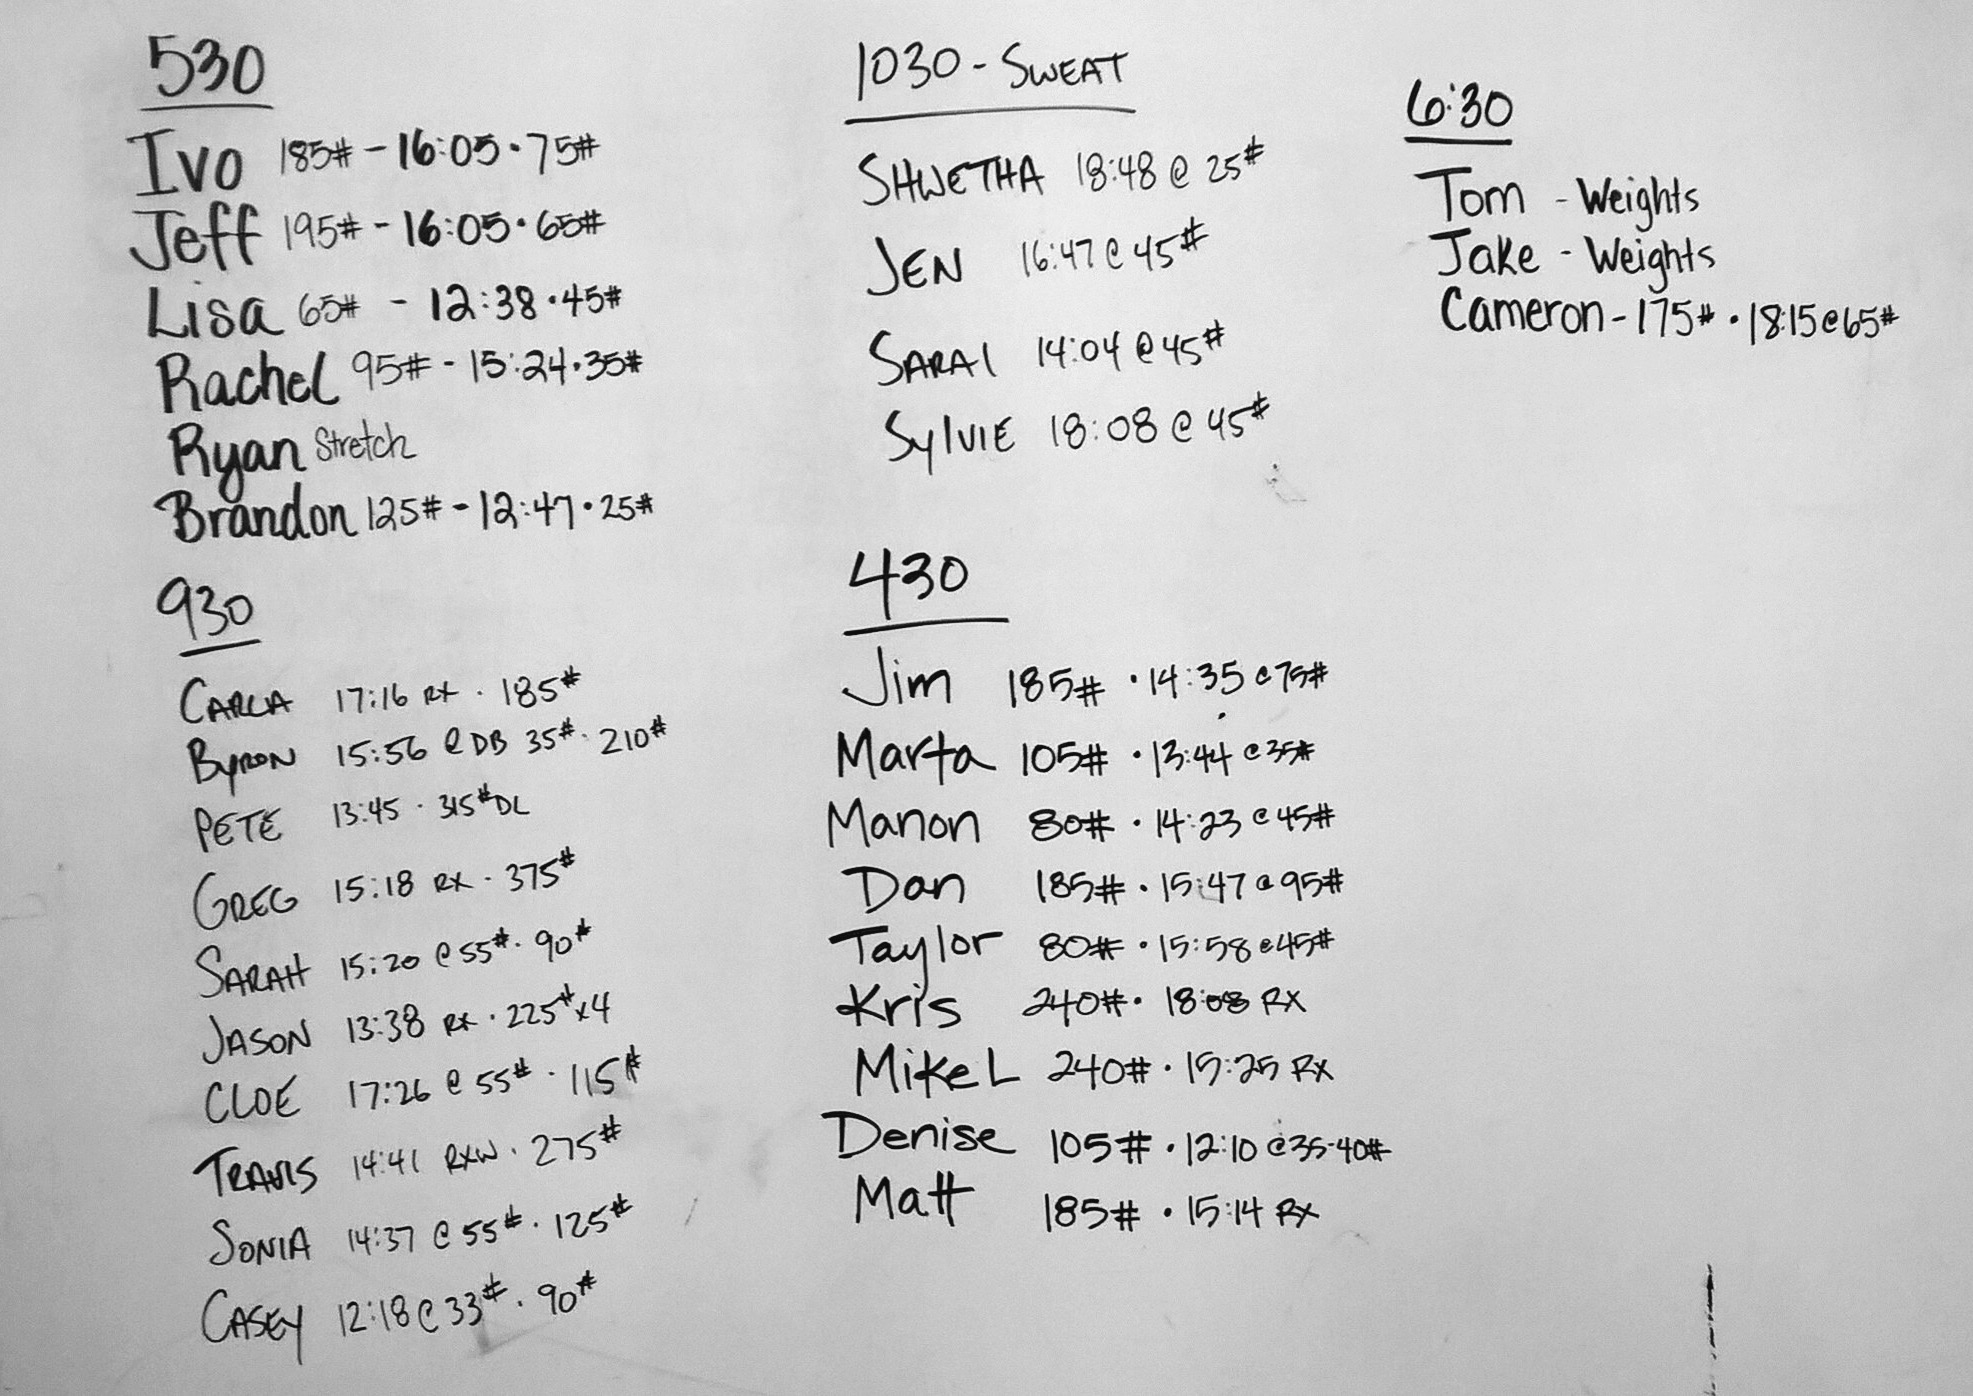 530
Ivo 185# - 16:05 · 75#
Jeff 195# - 16:05 · 65#
Lisa 65# - 12:38 · 45#
Rachel 95# - 15:24 · 35#
Ryan Stretch
Brandon 125# - 12:47 · 25#
930
CARLA 17:16 RX · 185#
BYRON 15:56 @ DB 35# · 210#
PETE 13:45 · 315# DL
GREG 15:18 RX · 375#
SARAH 15:20 @ 55# · 90#
JASON 13:38 RX · 225# x4
CLOE 17:26 @ 55# · 115#
TRAVIS 14:41 RXW · 275#
SONIA 14:37 @ 55# · 125#
CASEY 12:18 @ 33# · 90#
1030 - SWEAT
SHWETHA 18:48 @ 25#
JEN 16:47 @ 45#
SARAI 14:04 @ 45#
SylviE 18:08 @ 45#
430
Jim 185# · 14:35 @ 75#
Marta 105# · 13:44 @ 35#
Manon 80# · 14:23 @ 45#
Dan 185# · 15:47 @ 95#
Taylor 80# · 15:58 @ 45#
Kris 240# · 18:08 RX
Mike L 240# · 15:25 RX
Denise 105# · 12:10 @ 35-40#
Matt 185# · 15:14 RX
6:30
Tom - Weights
Jake - Weights
Cameron - 175# · 18:15 @ 65#